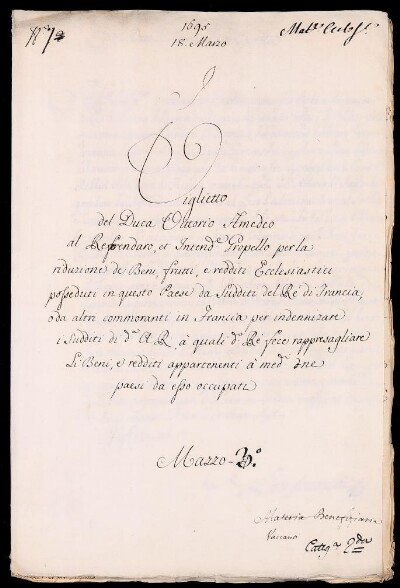 N.º 7
1695
18. Marzo
Mat.ª Eccles.
Viglietto
del Duca Vittorio Amedeo
al Refrendaro, et Intend.e Propello per la
riduzione de Beni, frutti, e redditi Ecclesiastici
posseduti in questo Paese da Sudditi del Re di Francia,
o da altri commoranti in Francia per indennizare
i Sudditi di d.a A. R. à quali d.o Re fece rappresagliare
Li Beni, e redditi appartenenti à med.mi ne
paesi da esso occupati
Mazzo 3.º
Materia Beneficiaria
Vaccano
Categ.a 2.da